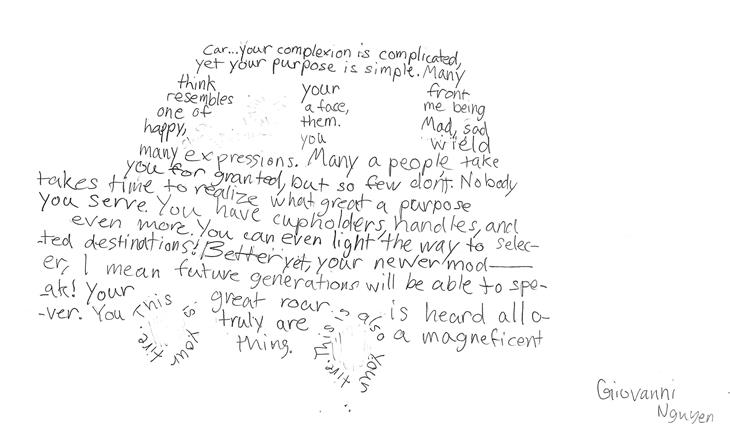 Car...your complexion is complicated,
yet your purpose is simple. Many
think your front
resembles a face, me being
one of them. Mad, sad
happy, you wield
many expressions. Many a people, take
you for granted, but so few don't. Nobody
takes time to realize what great a purpose
you serve. You have cupholders, handles, and
even more. You can even light the way to selec-
-ted destinations! Better yet, your newer mod——
er, I mean future generations will be able to spe-
-ak! Your great roar is heard all o-
-ver. You truly are a magneficent
thing.
This is your tire.
This is also your tire.
Giovanni
Nguyen